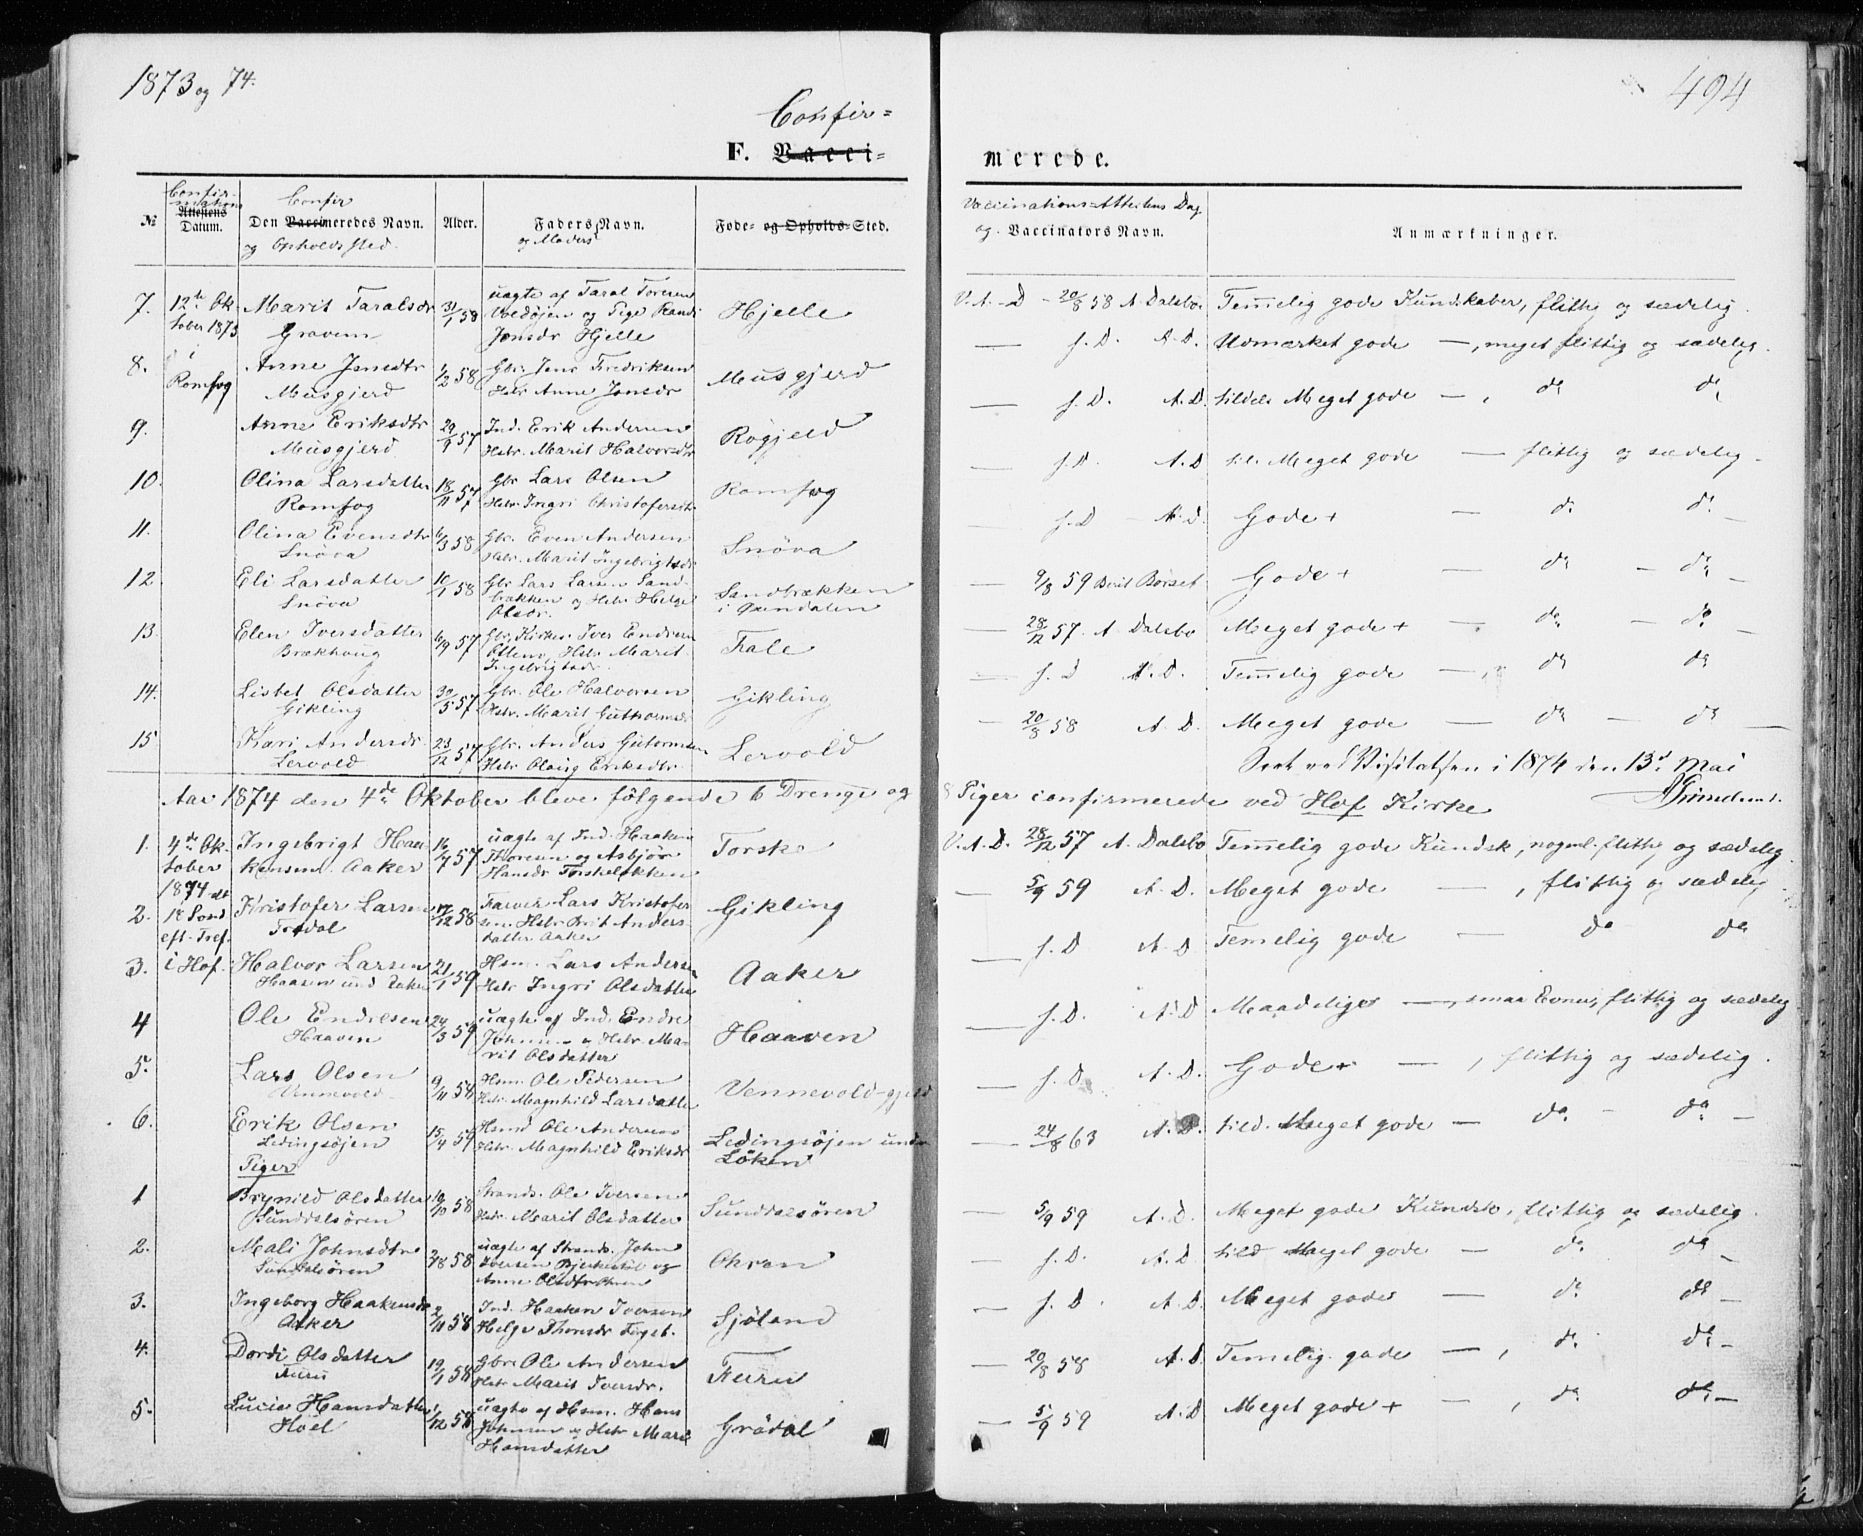 1873 og 74.
494
Confir=
F. Vacci=
merede.
№
Confir-
mations
Attestens
Datum.
Confir
Den Vaccineredes Navn.
og Opholdssted.
Alder.
Faders Navn.
og Moders
Føde- og Opholds-Sted.
Vaccinations-Attestens Dag
og Vaccinators Navn.
Anmærkninger.
7. 12te Ok- Marit Taralsdr 31/1 58 uægte af Taral Toresen Hjelle V.A.D. 20/8 58 A. Dalsbo. Temelig gode Kundskaber, flittig og sædelig.
tober 1873 Gravem og Pige Randi
Jonsdr Hjelle
8. i Anne Jensdtr 1/2 58 Gbr. Jens Fredriksen Musgjerd — s.D. A.D. Udmærket gode —, meget flittig og sædelig.
Romfog Musgjerd Hstr Anne Jonsdr
9. Anne Eriksdtr 29/9 57 Ind. Erik Andersen Røgjeld — s.D. A.D. tildels Meget gode —, do do
Musgjerd Hstr. Marit Halvorsdtr
10. Olina Larsdatter 18/11 57 Gbr Lars Olsen Romfog — s.D. A.D til. Meget gode — flittig og sædelig
Romfog Hstr. Ingri Christofersdtr
11. Olina Evensdtr 6/3 58 Gbr. Even Andersen Snöva — s.D — A.D. Gode + — do do —
Snöva Hstr. Marit Ingebrigtsdr
12 Eli Larsdatter 10/1 58 Gbr Lars Larsen Sand- Sandbrækken — 9/8 59 Berit Børset Gode + — do — do —
Snöva brækken og Hstr Helge i Qxendalen
Olsdr.
13. Elen Iversdatter 6/9 57 Gbr, Kirkes. Iver Endresen Fale — 28/12 57. A Dalsbo Meget gode + — do — do —
Brækhaug Ottem, Hstr Marit
Ingebrigtsdr.
14. Lisbet Olsdatter 30/5 57 Gbr. Ole Halvorsen Gikling — s.D A.D. Temelig gode —, do do
Gikling Hstr. Marit Guttormsdr
15 Kari Andersdr 23/12 57 Gbr. Anders Gutormsen Lervold — 20/8 58 A.D. Meget gode — do — do —
Lervold Hstr Olaug Eriksdtr
Seet ved Visitatsen i 1874 den 13de Mai
Aar 1874 den 4de Oktober bleve følgende 6 Drenge og 8 Piger confirmerede ved Hof Kirke
1. 4de Ok- Ingebrigt Haa- 16/7 57 uægte af Ind. Haaken Torske V.A.D. 28/12 57 A. Dalsbo Temelig gode Kundsk, nogenl. flittig og sædelig
tober kensen Aaker Thoresen og Asbjør
1874 Hansdr Torskeløkken
2. Kristofer Larsen 17/12 58 Farver Lars Kristofer- Gikling — 5/9 59 A.D. Meget gode —, flittig og sædelig
eft. Tref. Tredal sen, Hstr Brit Anders-
datter Aaker
3. i Hof. Halvor Larsen 21/1 59 Hsm. Lars Andersen Aaker — s.D A.D Temelig gode — do do
Haasen und Aaker Hstr Ingri Olsdatter
4 Ole Endresen 24/3 59 uægte af Ind. Endre Haaven — s.D. A.D Maadelige —, smaa Evner, flittig og sædelig
Haaven Johnsen og Hstr Ma-
rit Olsdatter
5. Lars Olsen 9/11 54 Hsm. Ole Pedersen Vennevold-gjeld — s.D. A.D. Gode + —, flittig og sædelig.
Vennevold Hstr. Magnhild Larsdatter
6. Erik Olsen 15/4 59 Hsmd Ole Andersen Ledingsöjen under — 24/8 63 A.D. tild. Meget gode — do. — do. —
Ledingsöjen Hstr. Magnhild Eriksdr Löken
Piger
1 Brynild Olsdatter 19/10 58 Strands. Ole Iversen Sunddalsören — 5/9 59 A.D. Meget gode Kundsk, flittig og sædelig.
Sunddalsören Hstr. Marit Olsdatter
2. Mali Johnsdtr 2/8 58 uægte af Strands. John Ohren — s.D. A.D. tild Meget gode — do do —
Sunddalsören Iversen Bjerkestöl og
Anne Olsdtr Ohren
3. Ingeborg Haakensdr 2/11 58 Ind. Haaken Iversen Sjöland — s.D. A.D. Meget gode — do. do —
Aaker Helge Thoresdr
4. Dordi Olsdatter 19/1 58 Gbr. Ole Andersen Furu — 20/8 58 A.D. Temelig gode —, do do —
Furu Hstr Marit Iversdr.
5. Lucie Hansdatter 1/12 58 uægte af Hsm. Hans Grödal — 5/9 59 A.D Meget gode + —, do do —
Hoel Johnsen og Hstr Marit
Hansdatter